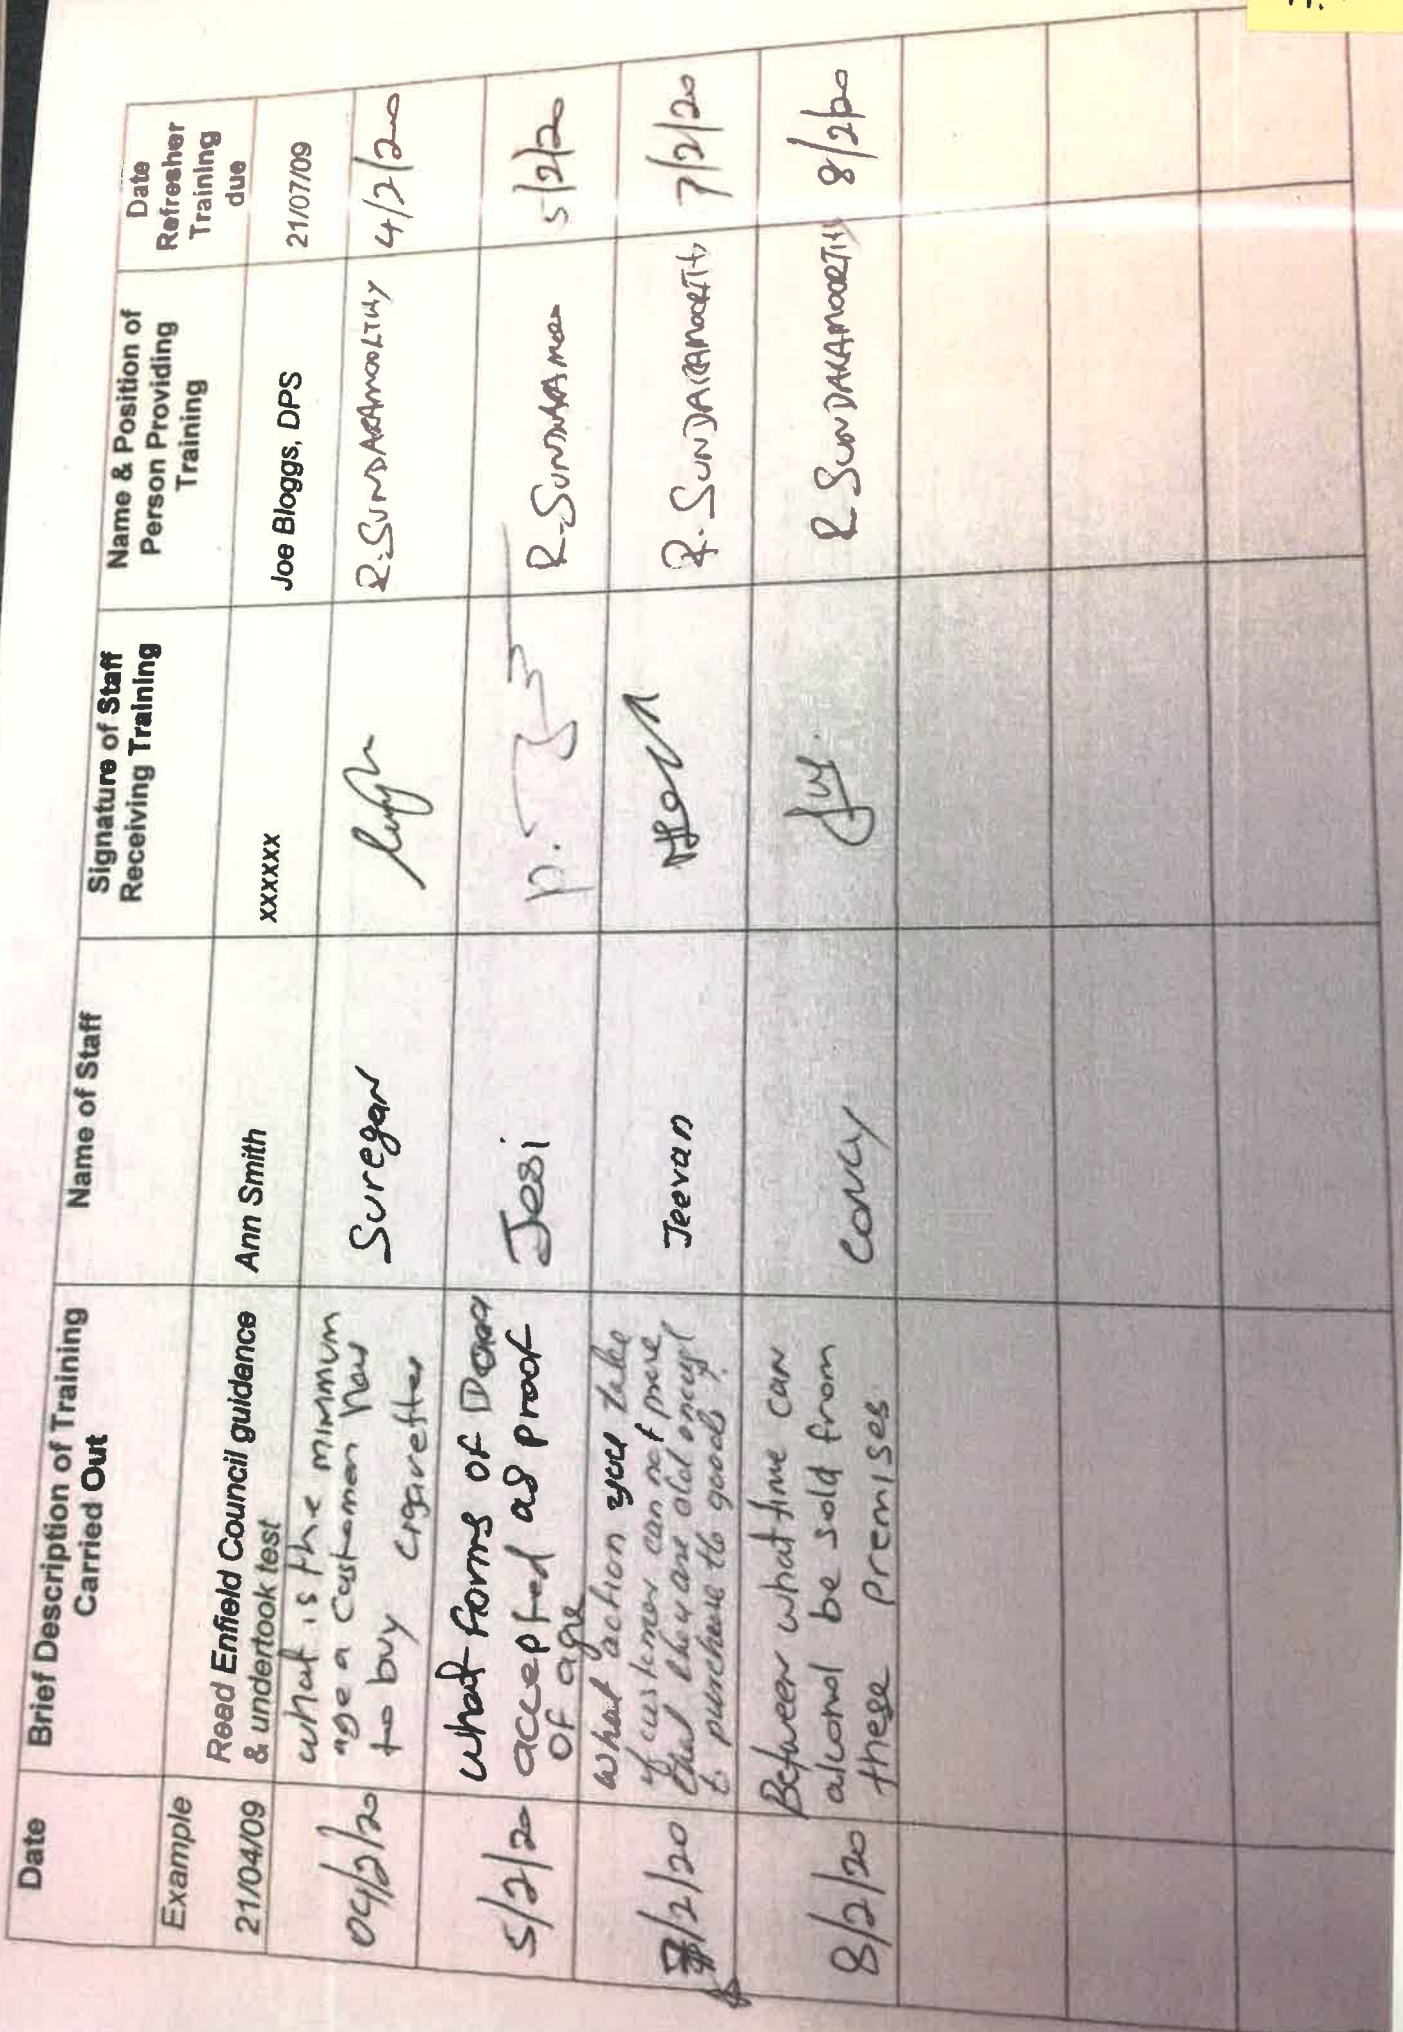 Date
Brief Description of Training
Carried Out
Name of Staff
Signature of Staff
Receiving Training
Name & Position of
Person Providing
Training
Date
Refresher
Training
due
Example
21/04/09
Read Enfield Council guidance
& undertook test
Ann Smith
xxxxxx
Joe Bloggs, DPS
21/07/09
04/2/20
what is the minimum
age a customer has
to buy cigarettes
Suregan
R. SUNDARAMOORTHY
4/2/20
5/2/20
what forms of
accepted as proof
of age
Jesi
R. SUNDARAMOO
5/2/20
7/2/20
what action you take
if customer can not prove
that they are old enough
to purchase the goods?
Jeevan
R. SUNDARAMOORTHY
7/2/20
8/2/20
Between what time can
alcohol be sold from
these premises.
R SUNDARAMOORTHY
8/2/20